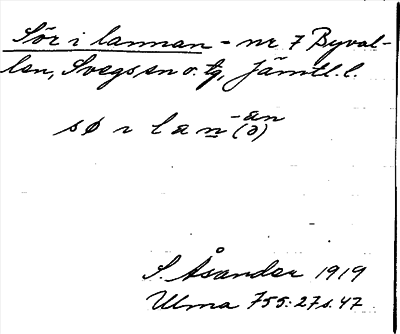 Sör i lannan = nr 7 Byval-
len, Svegs sn o. tg, Jämtl. l.
-än
sø ı lan (ə)
S. Åsander 1919
Ulma 755:27 s. 47